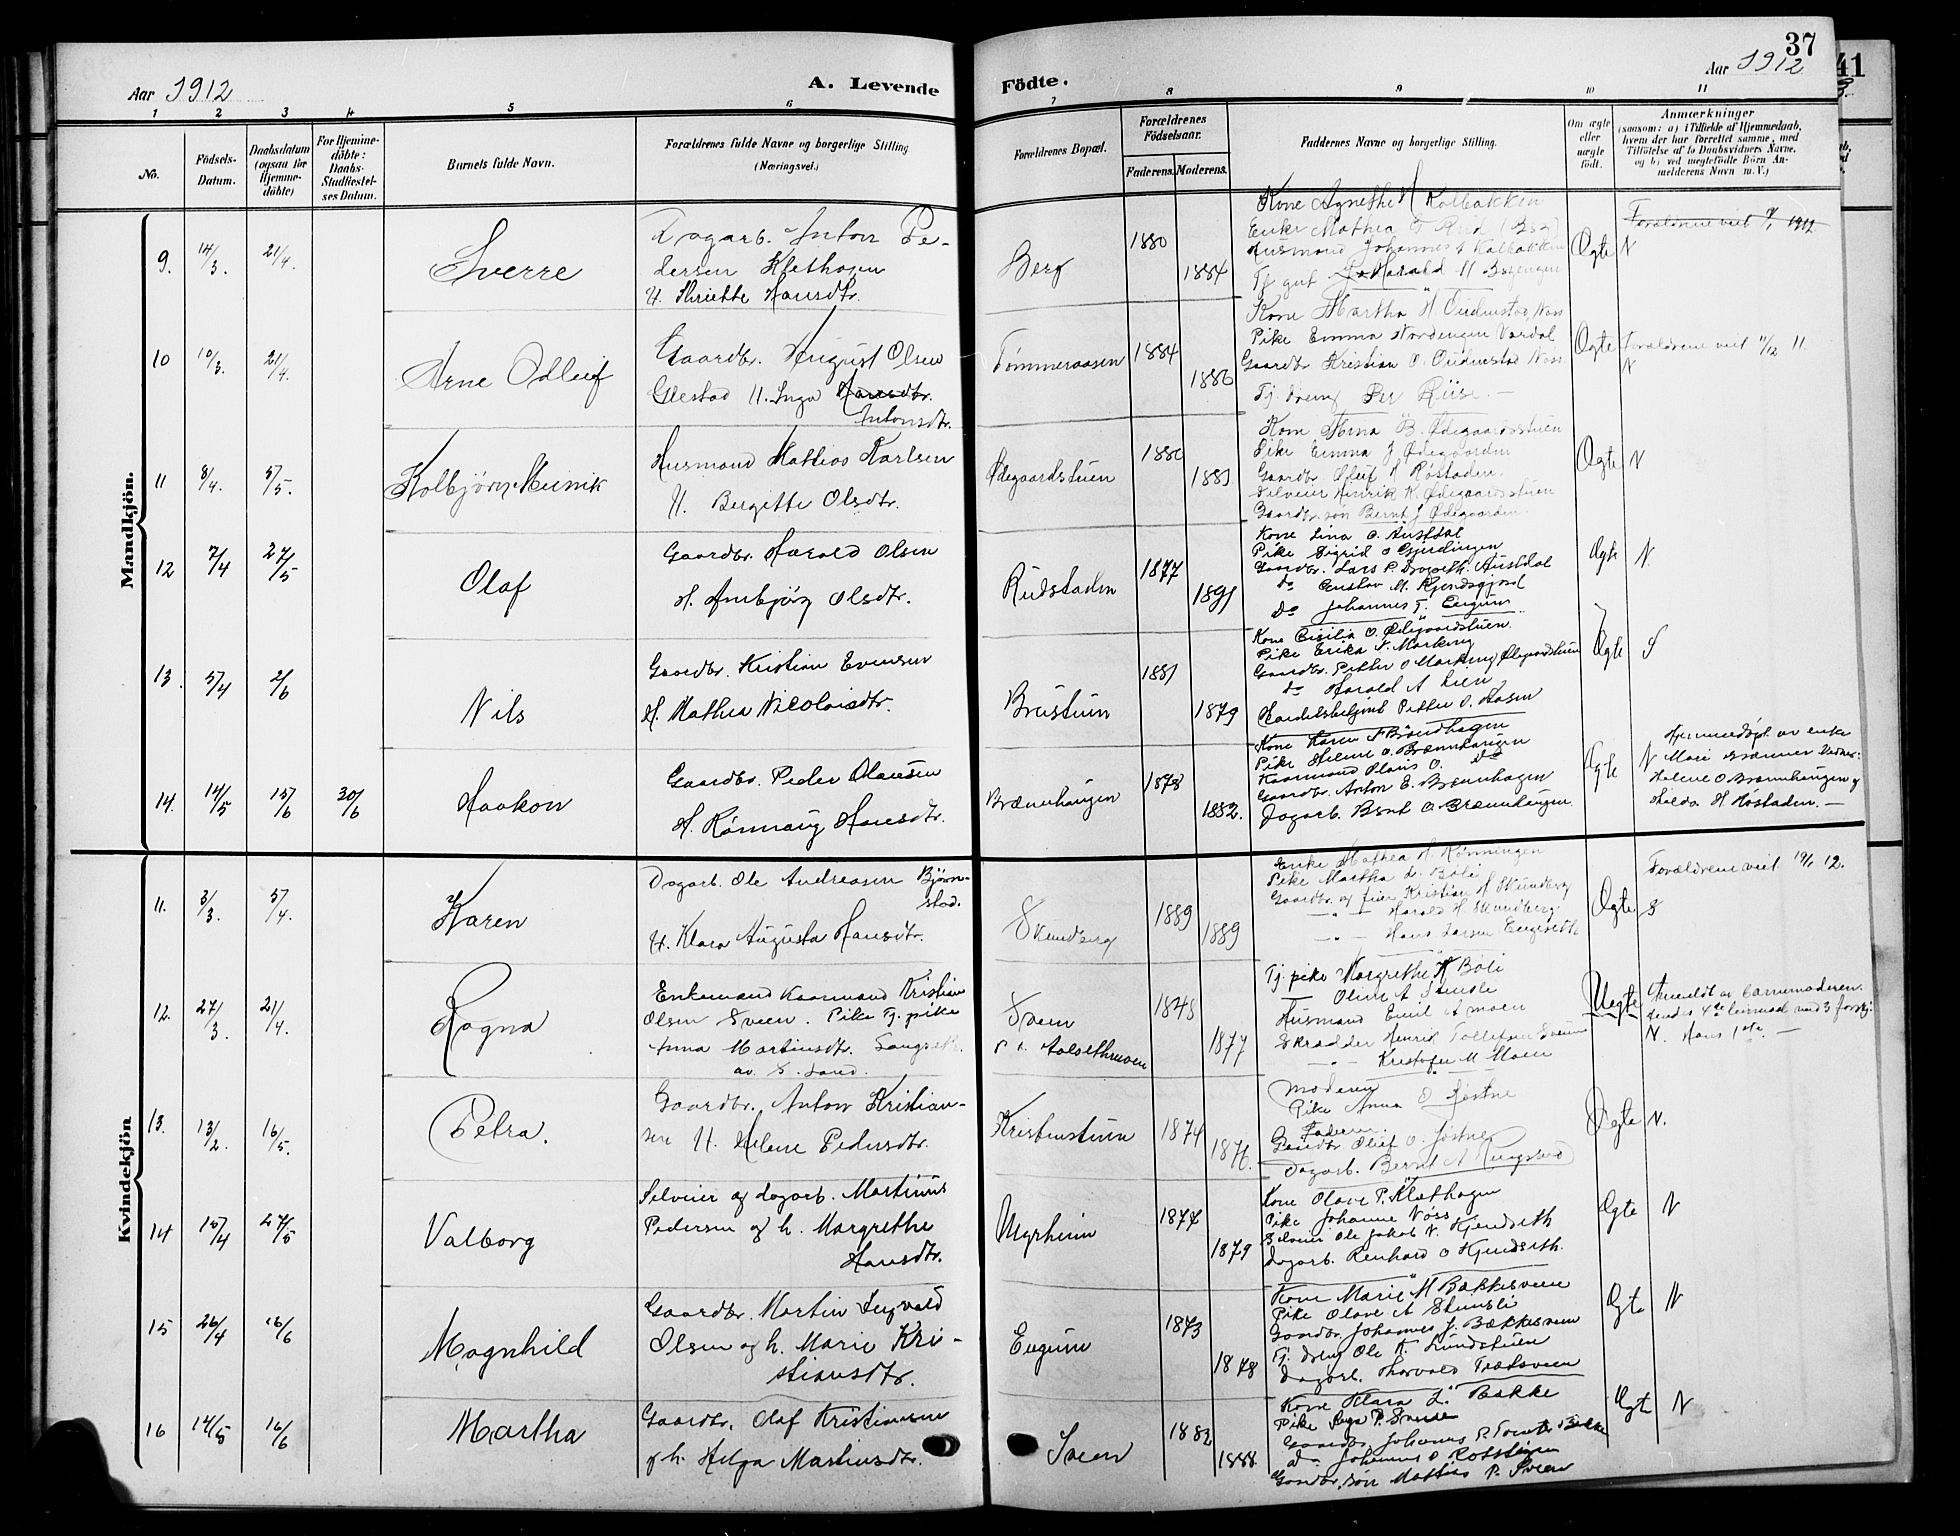 37
41
Aar 1912
A. Levende
Födte.
Aar 1912
1 2 3 4 5 6 7 8 9 10 11
No.
Födsels-
Datum.
Daabsdatum
(ogsaa for
Hjemme-
döbte)
For Hjemme-
döbte:
Daabs-
Stadfæstel-
ses Datum.
Barnets fulde Navn.
Forældrenes fulde Navne og borgerlige Stilling
(Næringsvei.)
Forældrenes Bopæl.
Forældrenes
Födselsaar.
Faderens. Moderens.
Faddernes Navne og borgerlige Stilling.
Om ægte
eller
uægte
født.
Anmærkninger
(saasom: a) i Tilfælde af Hjemmedaab,
hvem der har forrettet samme, med
Tilföielse af to Daabsvidners Navne,
og b) ved uægtefödte Börn An-
melderens Navn m. V.)
Mandkjön.
9. 14/3. 21/4.
Sverre
Dagarb. Anton Pe-
dersen Klethagen
Hansdtr.
Berg
1880
1884
Kone Agnethe H Kolbakken
Enke Mathea
Husmand Johannes Kolbakken
Harald H
Ægte N
Forældrene viet 1912
10 10/3. 21/4.
Arne Odleif
Gaardbr. August Olsen
H. Inga Hansdtr.
Antonsdtr.
Tømmeraasen
1884
1886
Kone Martha H
Pike Emma Nordengen Vardal
Gaardbr Kristian O.
Tj. dreng Per Riise. —
Ægte
Forældrene viet 11/12 11.
N
11 8/4. 5/5.
Kolbjørn Meinik
Husmand Mattias Karlsen
H. Bergitte Olsdtr.
Ødegaardstuen
1880
Kone B. Ødegaardsstuen
Pike Emma J Ødegaarden
Gaardbr Oluf H Røstaden.
Selveier Henrik K. Ødegaardsstuen
Gaardbr. søn Bernt J Ødegaarden.
Ægte N
12 7/4 27/5
Olaf
Gaardbr. Harald Olsen
H. Ambjørg Olsdtr.
Rudstaden
1877
1891
Kone Lina O. Austdal
Pike Sigrid O Gjerdingen
Gaardbr. Lars P. Austdal
do Gustav M.
do Johannes T. Engum
Ægte N.
13. 5/4 2/6
Nils
Gaardbr. Kristian Evensen
H. Mathea Nicolaisdtr.
Brustuen
1881
1879
Kone Cisilia O. Ødegaardstuen.
Pike Erika N. Marking
Gaardbr. Petter O Marking Ødegaardstuen
do Harald A Lien
Handelsbetjent Petter O.
Ægte S
14. 14/5 15/6 30/6
Haakon
Gaardbr. Peder Olausen
H. Rønnaug Hansdtr.
Brænnhaugen
1878
1882.
Kone Karen
Pike Helene O. Brænnhaugen
Kaarmand Olaus O. do
Gaardbr. Anton E. Brænnhagen
Dagarb. Bernt O Brænnhaugen
Ægte N
Hjemmedøpt av enke
Mari Brænner Vidner:
Helene O Brænnhaugen og
Hilda H Røstaden. —
Kvindekjön
11. 3/3. 5/4.
Karen
Dagarb. Ole Andreasen Bjørn-
stad.
H. Klara Augusta Hansdtr.
Skundberg
1889
1889
Enke Mathea H. Rønningen
Pike Martha L. Boli
Gaardbr. og Kristian H Skundberg
— " — Harald H Skundberg
— " — Hans Larsen Engeseth
Ægte S
Forældrene viet 19/1 12.
12. 27/3. 21/4.
Ragna
Enkemand Kaarmand Kristian
Olsen Sveen. Pike Tj. pike
Anna Martinsdtr.
av S. Land.
Sveen
1848
1877
Tj. pike Margrethe H Boli
— Oline A
Husmand Emil A Moen
Skrædder Henrik Tollefsen Sveum
— " — Kristofer M Moen
Uegte
Anmeldt av barnemoderen.
4de leiermaal med 3 forskj.
N. Hans 1ste. —
13. 13/2. 16/5.
Petra.
Gaardbr. Anton Kristian-
sen H. Helene Pedersdtr.
Kristenstuen
1874
1876.
Moderen
Pike Anna O Jøstne
Faderen.
Gaardbr Oluf O. Jøstne
Dagarb. Bernt A Ringstad
Ægte N.
14 15/4 27/5
Valborg
Selveier og dagarb. Martinus
Pedersen og h. Margrethe
Hansdtr.
Myrheim
1877
1879
Kone Olave P. Klæthagen
Pike Johanne Voss
Selveier Ole Jakob N. Kjendseth
Dagarb. Renhard O Kjendseth.
Ægte N
15 26/4 16/6
Magnhild
Gaardbr. Martin Ingvald
Olsen og h. Marie Kri-
stiansdtr.
Engum
1873
1878
Kone Marie M Bækkesveen
Pike Olave A
Gaardbr. Johannes J. Bækkesveen
Tj. dreng Ole K. Lundstuen
Dagarb. Thorvald Trætsveen
Ægte N
16 14/5 16/6
Martha
Gaardbr. Olaf Kristiansen
og h. Helga Martinsdtr.
Sveen
1882
1888.
Kone Klara L. Bakke
Pike Inga P. Sveen
Gaardbr. Johannes P. Bakke
do Johannes O
Gaardbr. søn Mattias P. Sveen
Ægte N